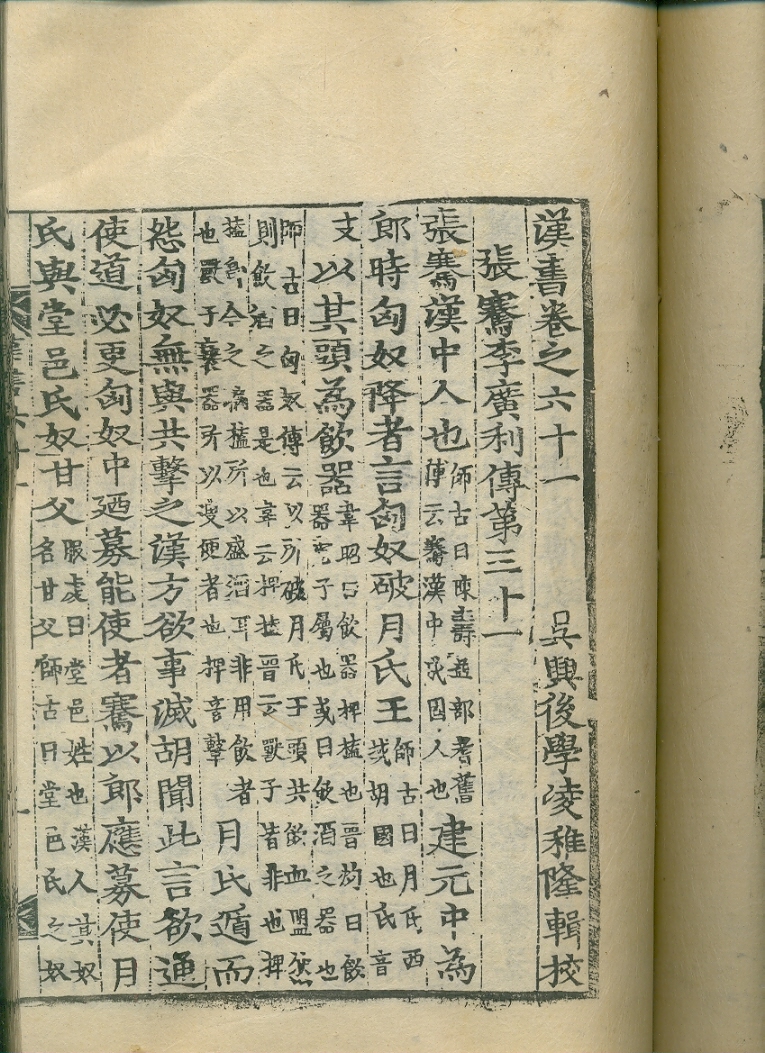 漢書卷之六十一　吳興後學凌稚隆輯校
張騫李廣利傳第三十一
張騫漢中人也師古曰陳壽益部耆舊傳云騫漢中成固人也建元中為
郎時匈奴降者言匈奴破月氏王師古曰月氏西域胡國也氏音
支以其頭為飲器韋昭曰飲器椑榼也晉灼曰飲器虎子屬也或曰飲酒之器也
師古曰匈奴傳云以所破月氏王頭共飲血盟然則飲酒之器是也韋云椑榼晉云獸子皆非也椑
榼即今之偏榼所以盛酒耳非用飲者也獸子褻器所以溲便者也椑音擊月氏遁而
怨匈奴無與共擊之漢方欲事滅胡聞此言欲通
使道必更匈奴中廼募能使者騫以郎應募使月
氏與堂邑氏奴甘父服虔曰堂邑姓也漢人其奴名甘父師古曰堂邑氏之奴